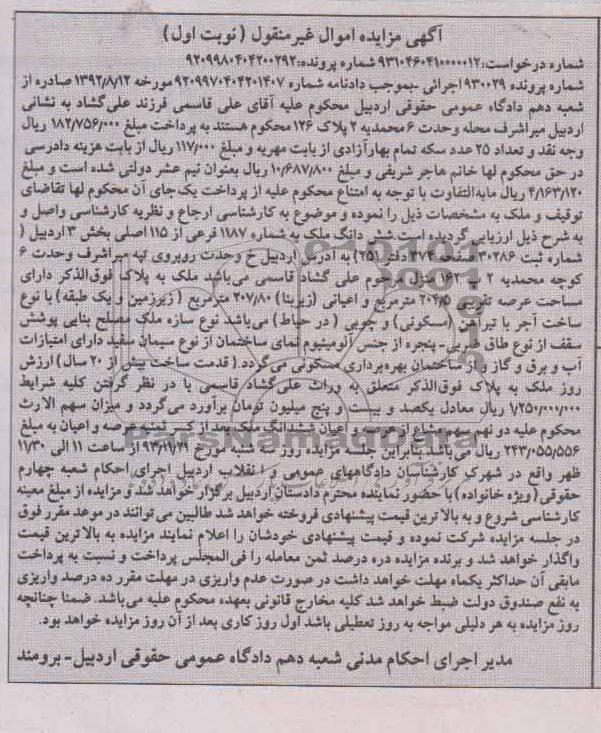 آگهی مزایده اموال غیرمنقول (نوبت اول)
شماره درخواست: ۹۳۱۰۴۶۰۴۱۰۰۰۰۰۱۲ شماره پرونده: ۹۲۰۹۹۸۰۴۰۴۲۰۰۲۹۲
شماره پرونده ۹۳۰۰۲۹ اجرائی -بموجب دادنامه شماره ۹۲۰۹۹۷۰۴۰۴۲۰۱۴۰۷ مورخه ۱۳۹۲/۸/۱۲ صادره از
شعبه دهم دادگاه عمومی حقوقی اردبیل محکوم علیه آقای علی قاسمی فرزند علی گشاد به نشانی
اردبیل میراشرف محله وحدت ۶ محمدیه ۲ پلاک ۱۲۶ محکوم هستند به پرداخت مبلغ ۱۸۲/۷۵۶/۰۰۰ ریال
وجه نقد و تعداد ۲۵ عدد سکه تمام بهار آزادی از بابت مهریه و مبلغ ۱۱۷/۰۰۰ ریال از بابت هزینه دادرسی
در حق محکوم لها خانم هاجر شریفی و مبلغ ۱۰/۶۸۷/۸۰۰ ریال بعنوان نیم عشر دولتی شده است و مبلغ
۴/۱۶۳/۱۲۰ ریال مابه التفاوت با توجه به امتناع محکوم علیه از پرداخت یک جای آن محکوم لها تقاضای
توقیف و ملک به مشخصات ذیل را نموده و موضوع به کارشناسی ارجاع و نظریه کارشناسی واصل و
به شرح ذیل ارزیابی گردیده است شش دانگ ملک به شماره ۱۱۸۷ فرعی از ۱۱۵ اصلی بخش ۳ اردبیل (
شماره ثبت ۳۰۲۸۶ صفحه ۳۷۴ دفتر ۲۵۱) به آدرس اردبیل خ وحدت روبروی تپه میراشرف وحدت ۶
کوچه محمدیه ۲ پ ۱۶۲ منزل مرحوم علی گشاد قاسمی می باشد ملک به پلاک فوق الذکر دارای
مساحت عرصه تقریبی ۲۰۴/۵ مترمربع و اعیانی (زیربنا) ۲۰۷/۸۰ مترمربع (زیرزمین و یک طبقه) با نوع
ساخت آجر با تیرآهن (مسکونی) و چوبی (در حیاط) می باشد نوع سازه ملک مصلح بنایی پوشش
سقف از نوع طاق ضربی- پنجره از جنس آلومینیوم نمای ساختمان از نوع سیمان سفید دارای امتیازات
آب و برق و گاز و از ساختمان بهره برداری مسکونی می گردد (قدمت ساخت بیش از ۲۰ سال) ارزش
روز ملک به پلاک فوق الذکر متعلق به وراث علی گشاد قاسمی با در نظر گرفتن کلیه شرایط
۱/۲۵۰/۰۰۰/۰۰۰ ریال معادل یکصد و بیست و پنج میلیون تومان برآورد می گردد و میزان سهم الارث
محکوم علیه دو نهم سهم مشاع از عرصه و اعیان ششدانگ ملک بعد از کسر ثمنیه عرصه و اعیان به مبلغ
۲۴۳/۰۵۵/۵۵۶ ریال می باشد بنابراین جلسه مزایده روز سه شنبه مورخ از ساعت ۱۱ الی ۱۱/۳۰
ظهر واقع در شهرک کارشناسان دادگاههای عمومی و انقلاب اردبیل اجرای احکام شعبه چهارم
حقوقی (ویژه خانواده) با حضور نماینده محترم دادستان اردبیل برگزار خواهد شد و مزایده از مبلغ معینه
کارشناسی شروع و به بالاترین قیمت پیشنهادی فروخته خواهد شد طالبین می توانند در موعد مقرر فوق
در جلسه مزایده شرکت نموده و قیمت پیشنهادی خودشان را اعلام نمایند مزایده به بالاترین قیمت
واگذار خواهد شد و برنده مزایده ده درصد ثمن معامله را فی المجلس پرداخت و نسبت به پرداخت
مابقی آن حداکثر یکماه مهلت خواهد داشت در صورت عدم واریزی در مهلت مقرر ده درصد واریزی
به نفع صندوق دولت ضبط خواهد شد کلیه مخارج قانونی بعهده محکوم علیه می باشد. ضمنا چنانچه
روز مزایده به هر دلیلی مواجه به روز تعطیلی باشد اول روز کاری بعد از آن روز مزایده خواهد بود.
مدیر اجرای احکام مدنی شعبه دهم دادگاه عمومی حقوقی اردبیل- برومند
ParsNamadData